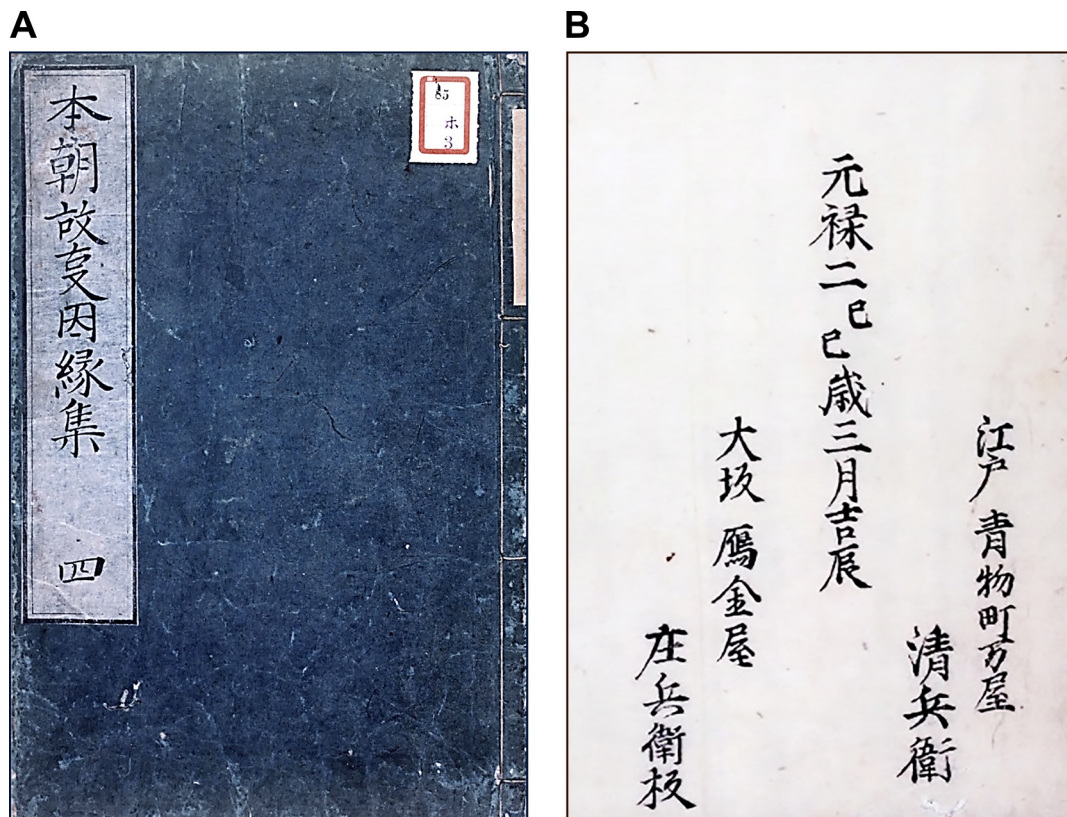 A
本朝故叓因縁集 四
85
ホ
3
B
江戸 青物町万屋
清兵衛
元禄二己巳歳三月吉辰
大坂 鴈金屋
庄兵衛板